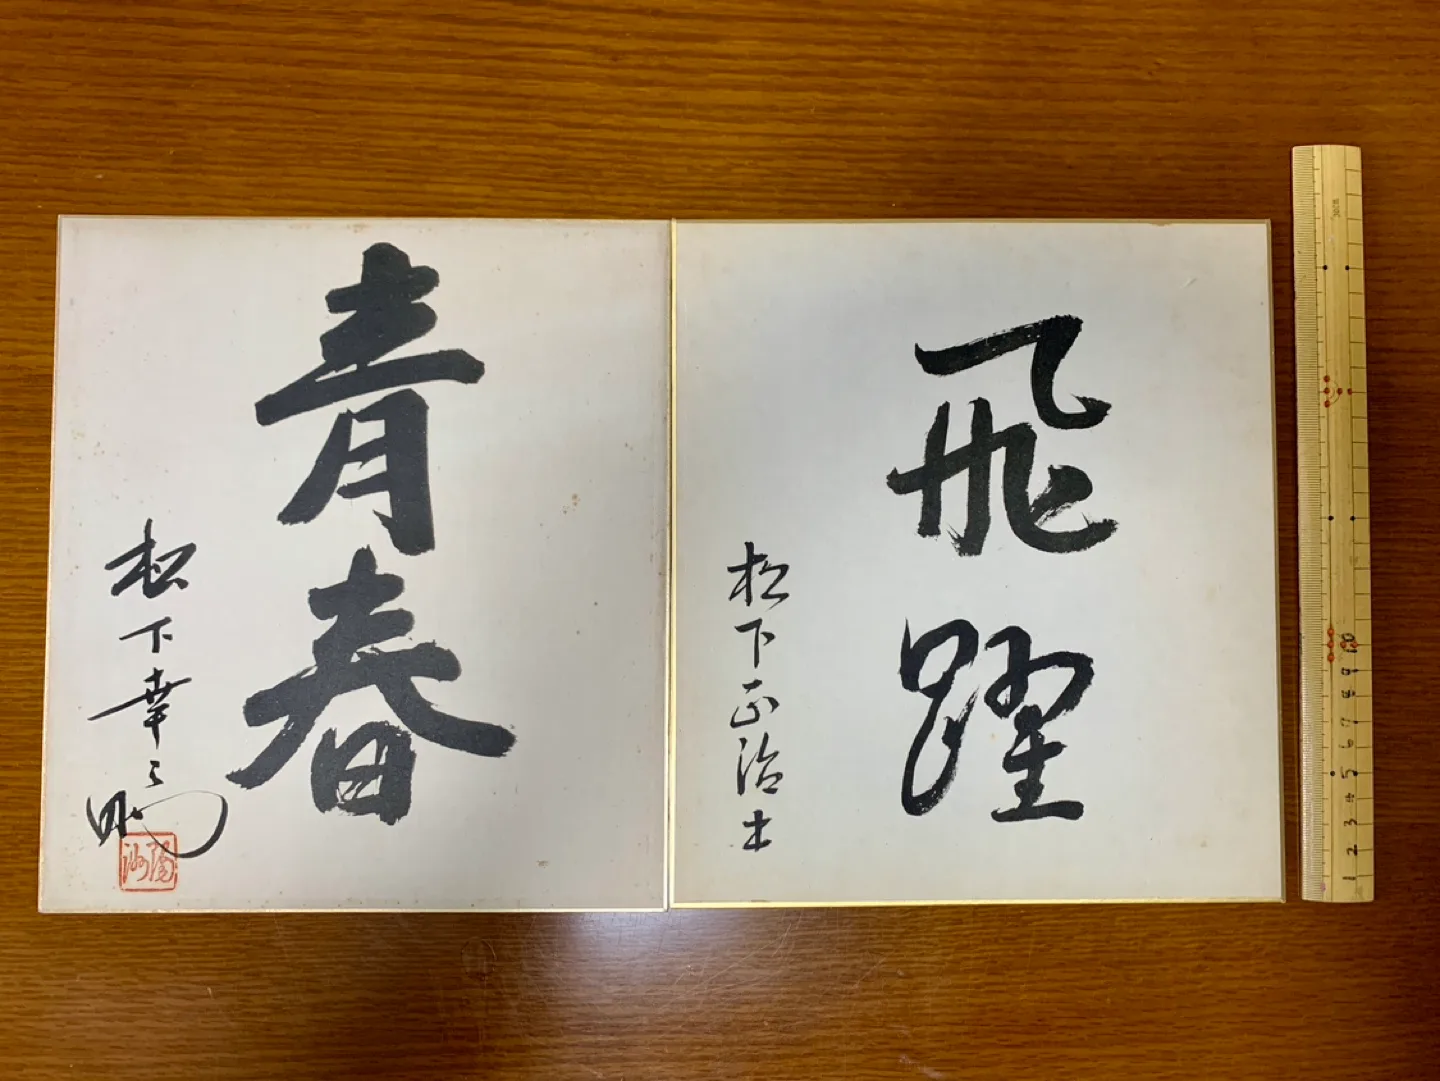 青春
松下幸之助
飛躍
松下正治
30cm
1 2 3 4 5 6 7 8 9 10